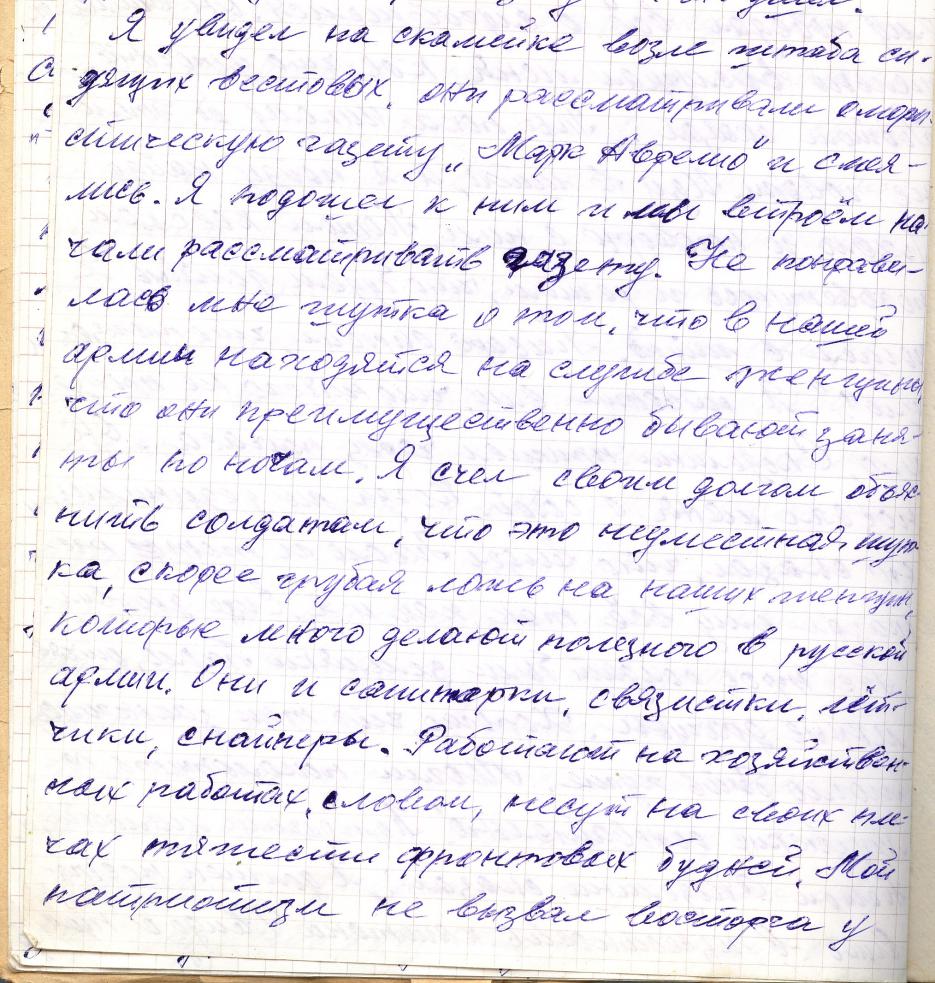 Я увидел на скамейке возле штаба си-
дящих вестовых, они рассматривали юмори
стическую газету „Марк Аврелио" и смея-
лись. Я подошел к ним и мы втроём на-
чали рассматривать газету. Не понрави-
лась мне шутка о том, что в нашей
армии находятся на службе женщины,
что они преимущественно бывают заня-
ты по ночам. Я счел своим долгом объяс-
нить солдатам, что это неуместная шут-
ка, скорее грубая ложь на наших женщин,
которые много делают полезного в русской
армии. Они и санитарки, связистки, лёт-
чики, снайперы. Работают на хозяйствен-
ных работах, словом, несут на своих пле-
чах тяжести фронтовых будней. Мой
патриотизм не вызвал восторга у